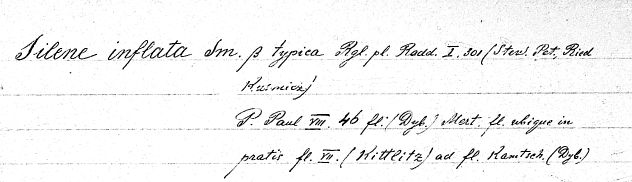 Silene inflata Sm. β typica Rgl. pl. Radd. I. 301 (Stew. Pet., Ried
Kusmicz)
P. Paul VIII. 46 fl. (Dyb.) Mert. fl. ubique in
pratis fl. VII. (Kittlitz) ad fl. Kamtsch. (Dyb.)